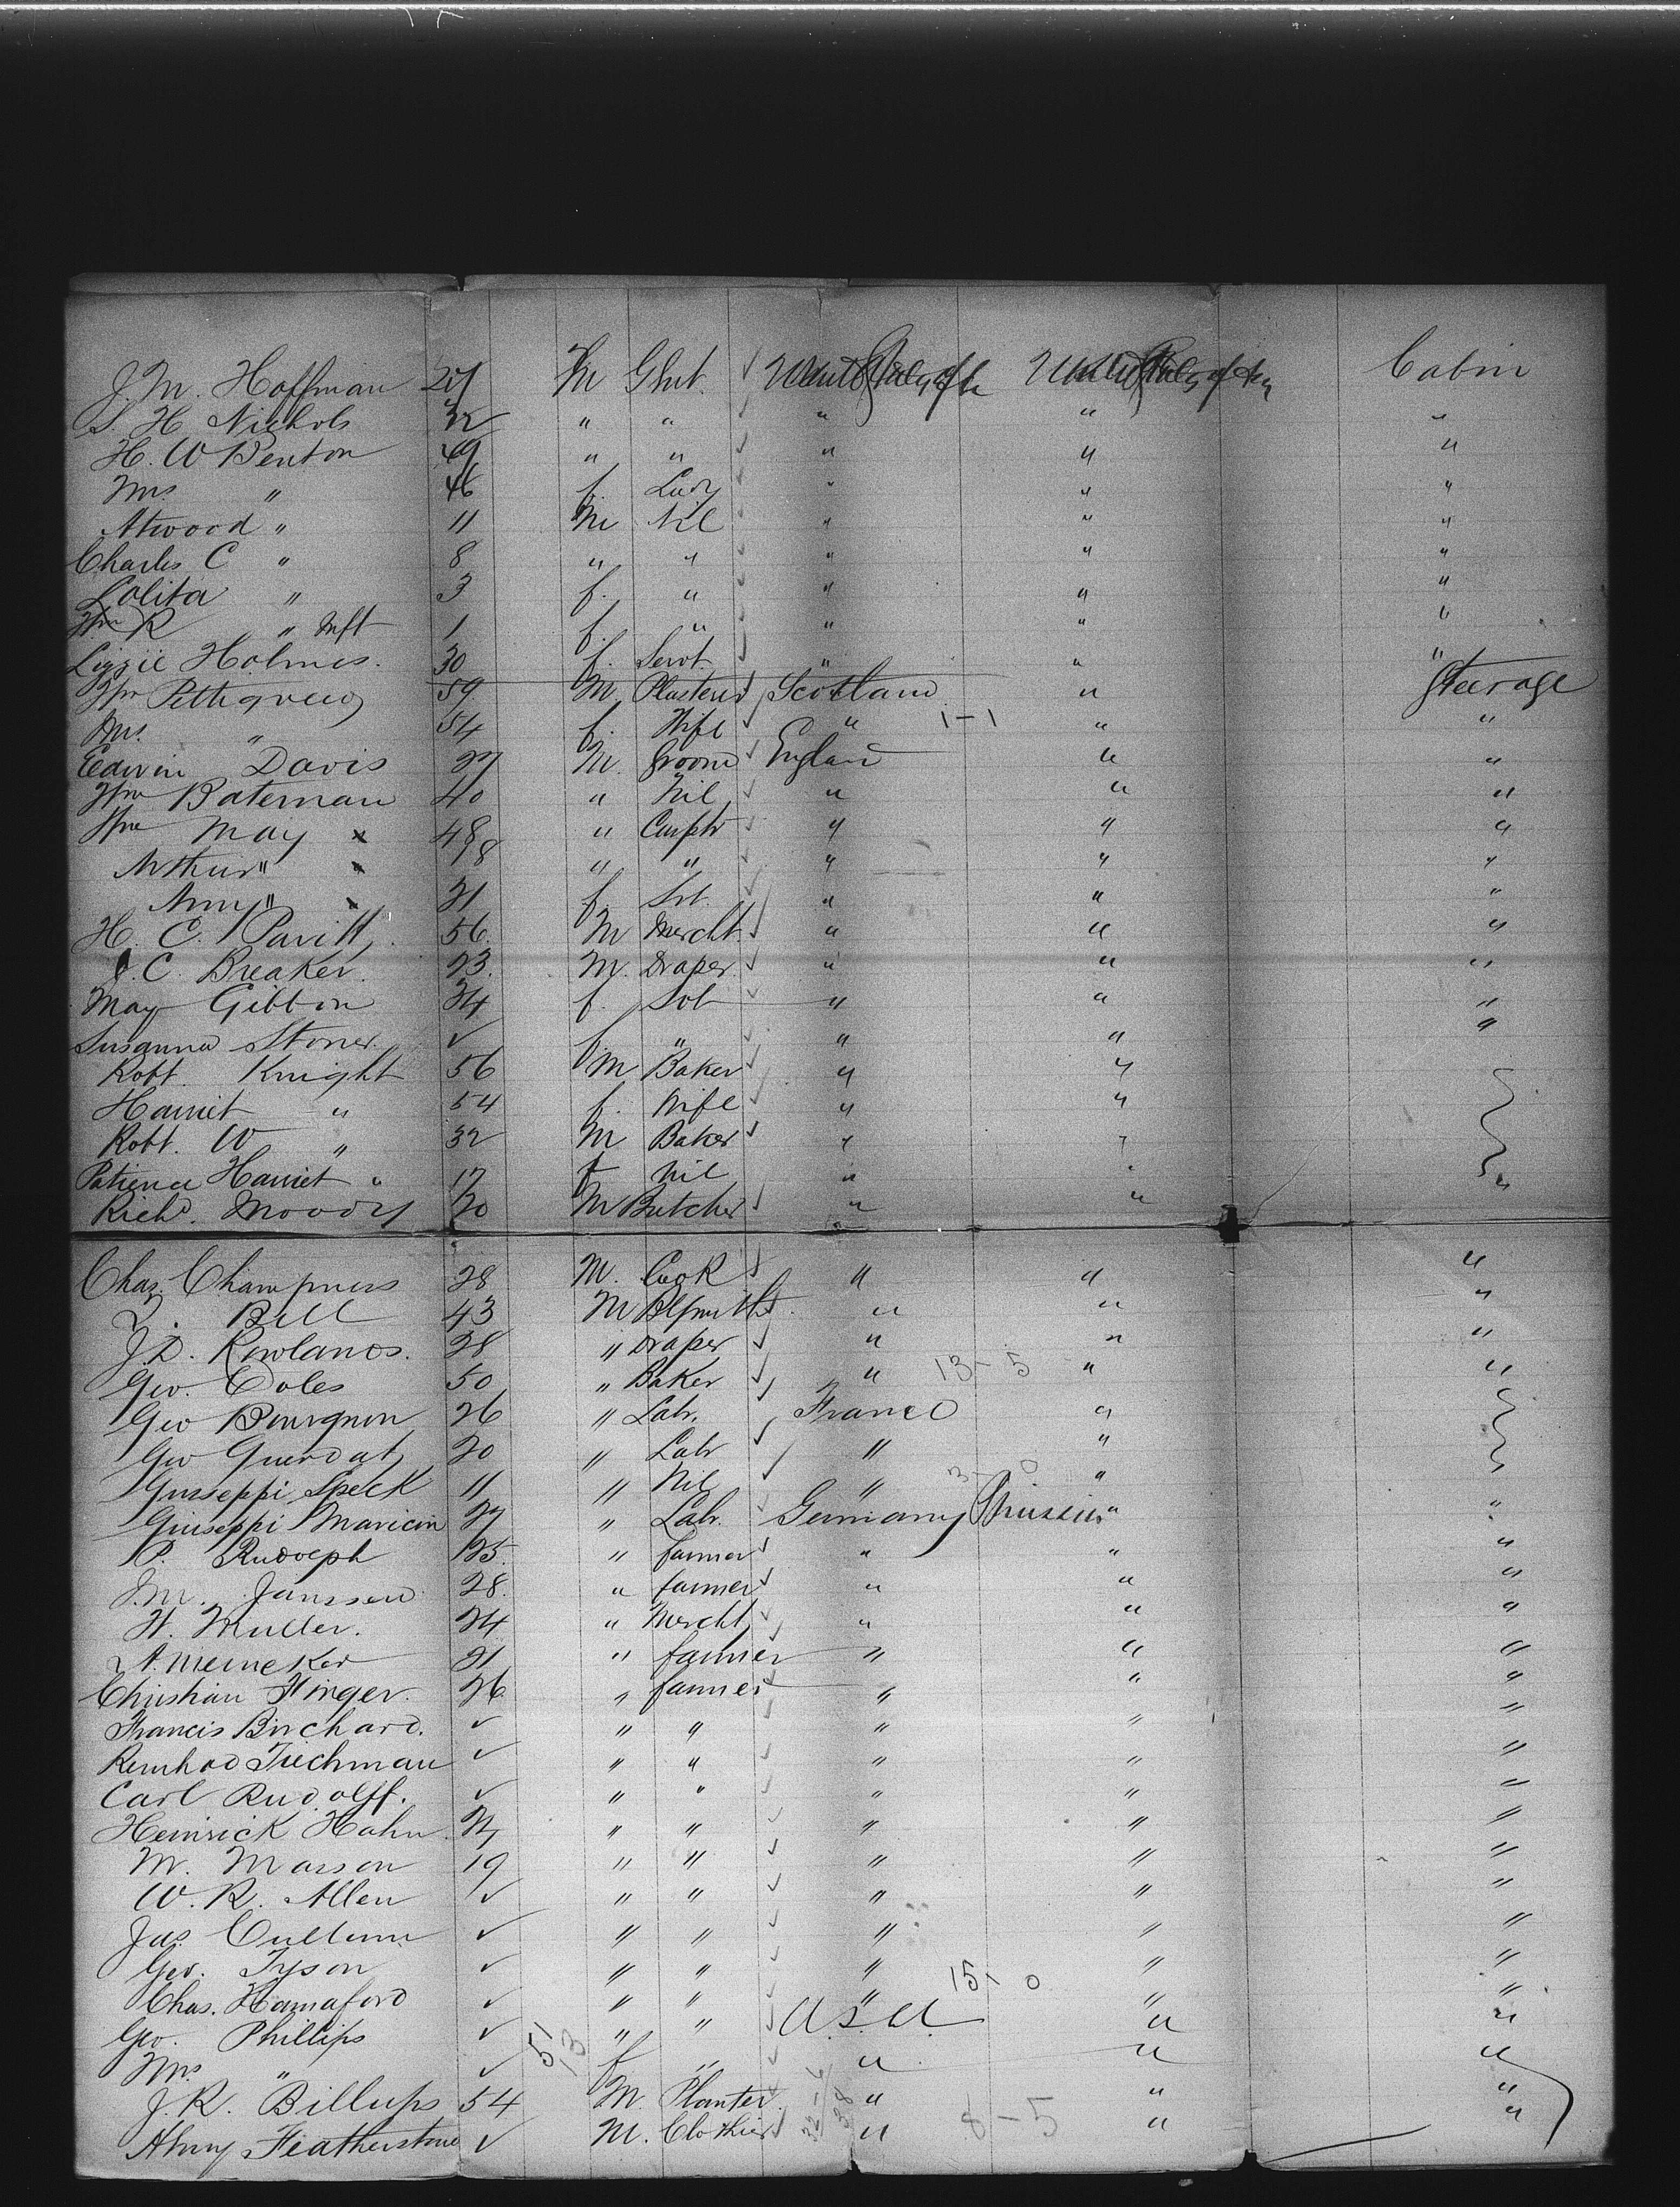 J. M. Hoffman 27 M Ghnt. ✓ United States of Am United States of Am Cabin
S. H. Nichols 32 " " ✓ " " "
H. W Benton 49 " " ✓ " " "
Mrs " 46 f. Lady ✓ " " "
Atwood " 11 M Nil ✓ " " "
Charles C " 8 " " ✓ " " "
Lolita " 3 f. " ✓ " " "
Wm R " Inft 1 f. " ✓ " " "
Lizzie Holmes. 30 f. Servt. ✓ " " "
Wm Pettigrew 59 M. Plasterer ✓ Scotland " Steerage
Mrs. " 54 f. Wife ✓ " 1-1 " "
Edwin Davis 27 M. Groom ✓ England " "
Wm Bateman 40 " Nil ✓ " " "
Wm May x 48 " Carptr ✓ " " "
Arthur " x 18 " " ✓ " " "
Amy " x 21 f. Srt. ✓ " " "
H. C. Pavitt. 56. M Mercht. ✓ " " "
J. C. Breaker. 23. M. Draper ✓ " " "
May Gibbon 24 f. Svt ✓ " " "
Susanna Stoner. ✓ f. " ✓ " " "
Robt. Knight 56 M Baker ✓ " "
Harriet " 54 f. Wife ✓ " "
Robt. W " 32 M Baker ✓ " "
Patience Harriet " 17 f Nil " " "
Richd. Moody 20 M Butcher ✓ " "
Chas. Champness 28 M. Cook ✓ " " "
T. Bell 43 M Blsmith ✓ " " "
J. D. Rowlands. 28 " Draper ✓ " " "
Geo. Coles 50 " Baker ✓ " 13-5 " "
Geo Bourgnon 26 " Labr. ✓ France "
Geo Guerdat 20 " Labr ✓ " "
Guiseppi Speck 11 " Nil ✓ " 3-0 "
Giuseppi Maricin 27 " Labr. ✓ Germany Prussia " "
P. Rudolph 25. " farmer ✓ " " "
J. M. Janssen 28. " farmer ✓ " " "
H. Muller. 24 " Mercht ✓ " " "
A. Meineker 21 " farmer " " "
Christian Finger. 26 " farmer " " "
Francis Birchard. ✓ " " ✓ " " "
Reinhod Tiechman ✓ " " ✓ " " "
Carl Rudolff. ✓ " " ✓ " " "
Heinrick Hahn 24 " " ✓ " " "
M. Masson 19 " " ✓ " " "
W. R. Allen ✓ " " ✓ " " "
Jas. Cullum ✓ " " ✓ " " "
Geo. Tyson ✓ " " ✓ " " "
Chas. Hannaford ✓ " " ✓ " 15-0 " "
Geo. Phillips ✓ " " ✓ U.S.A. " "
Mrs " ✓ 51 13 f " ✓ " " "
J. R. Billups 54 M. Planter ✓ " " "
Featherstone ✓ M. Clothier ✓ 22-6 38 " 8-5 " "